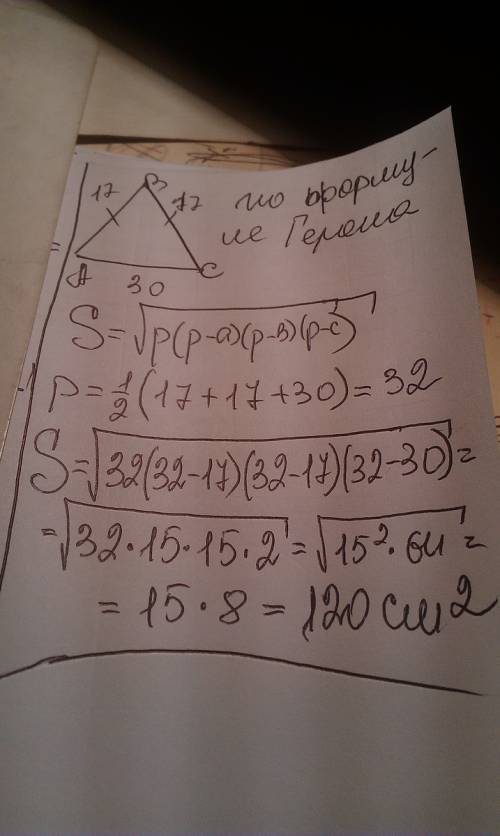 B
17 17
A C
30
по форму-
ле Герона
S=√p(p-a)(p-в)(p-c)
p=1/2(17+17+30)=32
S=√32(32-17)(32-17)(32-30)=
=√32·15·15·2=√15²·64=
=15·8=120 см²